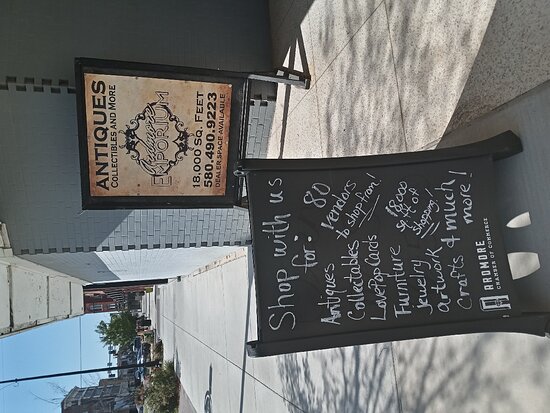 ANTIQUES
COLLECTIBLES AND MORE
Ardmore
EMPORIUM
18,000 SQ. FEET
580.490.9223
DEALER SPACE AVAILABLE
Shop with us
for:
80
vendors
to shop from!
Antiques
Collectables
LovePop Cards
Furniture
Jewelry
artwork
Crafts & much
more!
18,000
sq ft of
shopping!
ARDMORE
CHAMBER OF COMMERCE